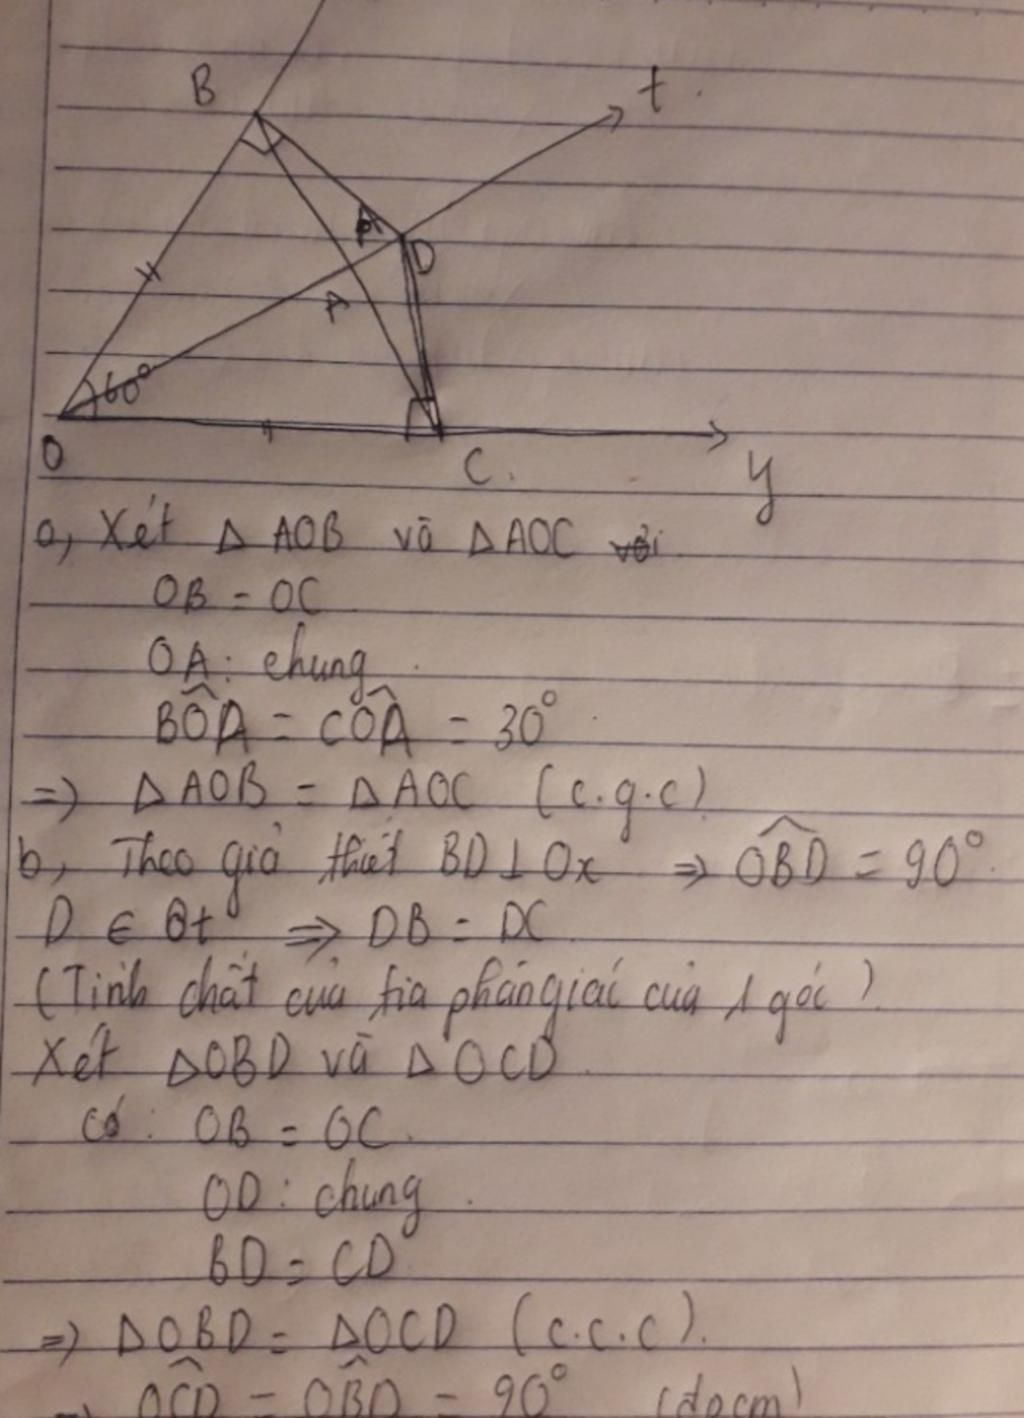 B
t
A
D
A
60°
O
C.
y
a, Xét Δ AOB và ΔAOC với
OB = OC
OA: chung.
BÔA = CÔA = 30°
=> ΔAOB = ΔAOC (c.g.c)
b, Theo giả thiết BD⊥Ox => OB̂D = 90°.
D ∈ Ot => DB = DC
(Tính chất của tia phân giác của 1 góc)
Xét ΔOBD và ΔOCD.
Có: OB = OC.
OD: chung.
BD = CD
=> ΔOBD = ΔOCD (c.c.c).
=> OĈD = OB̂D = 90° (đpcm)